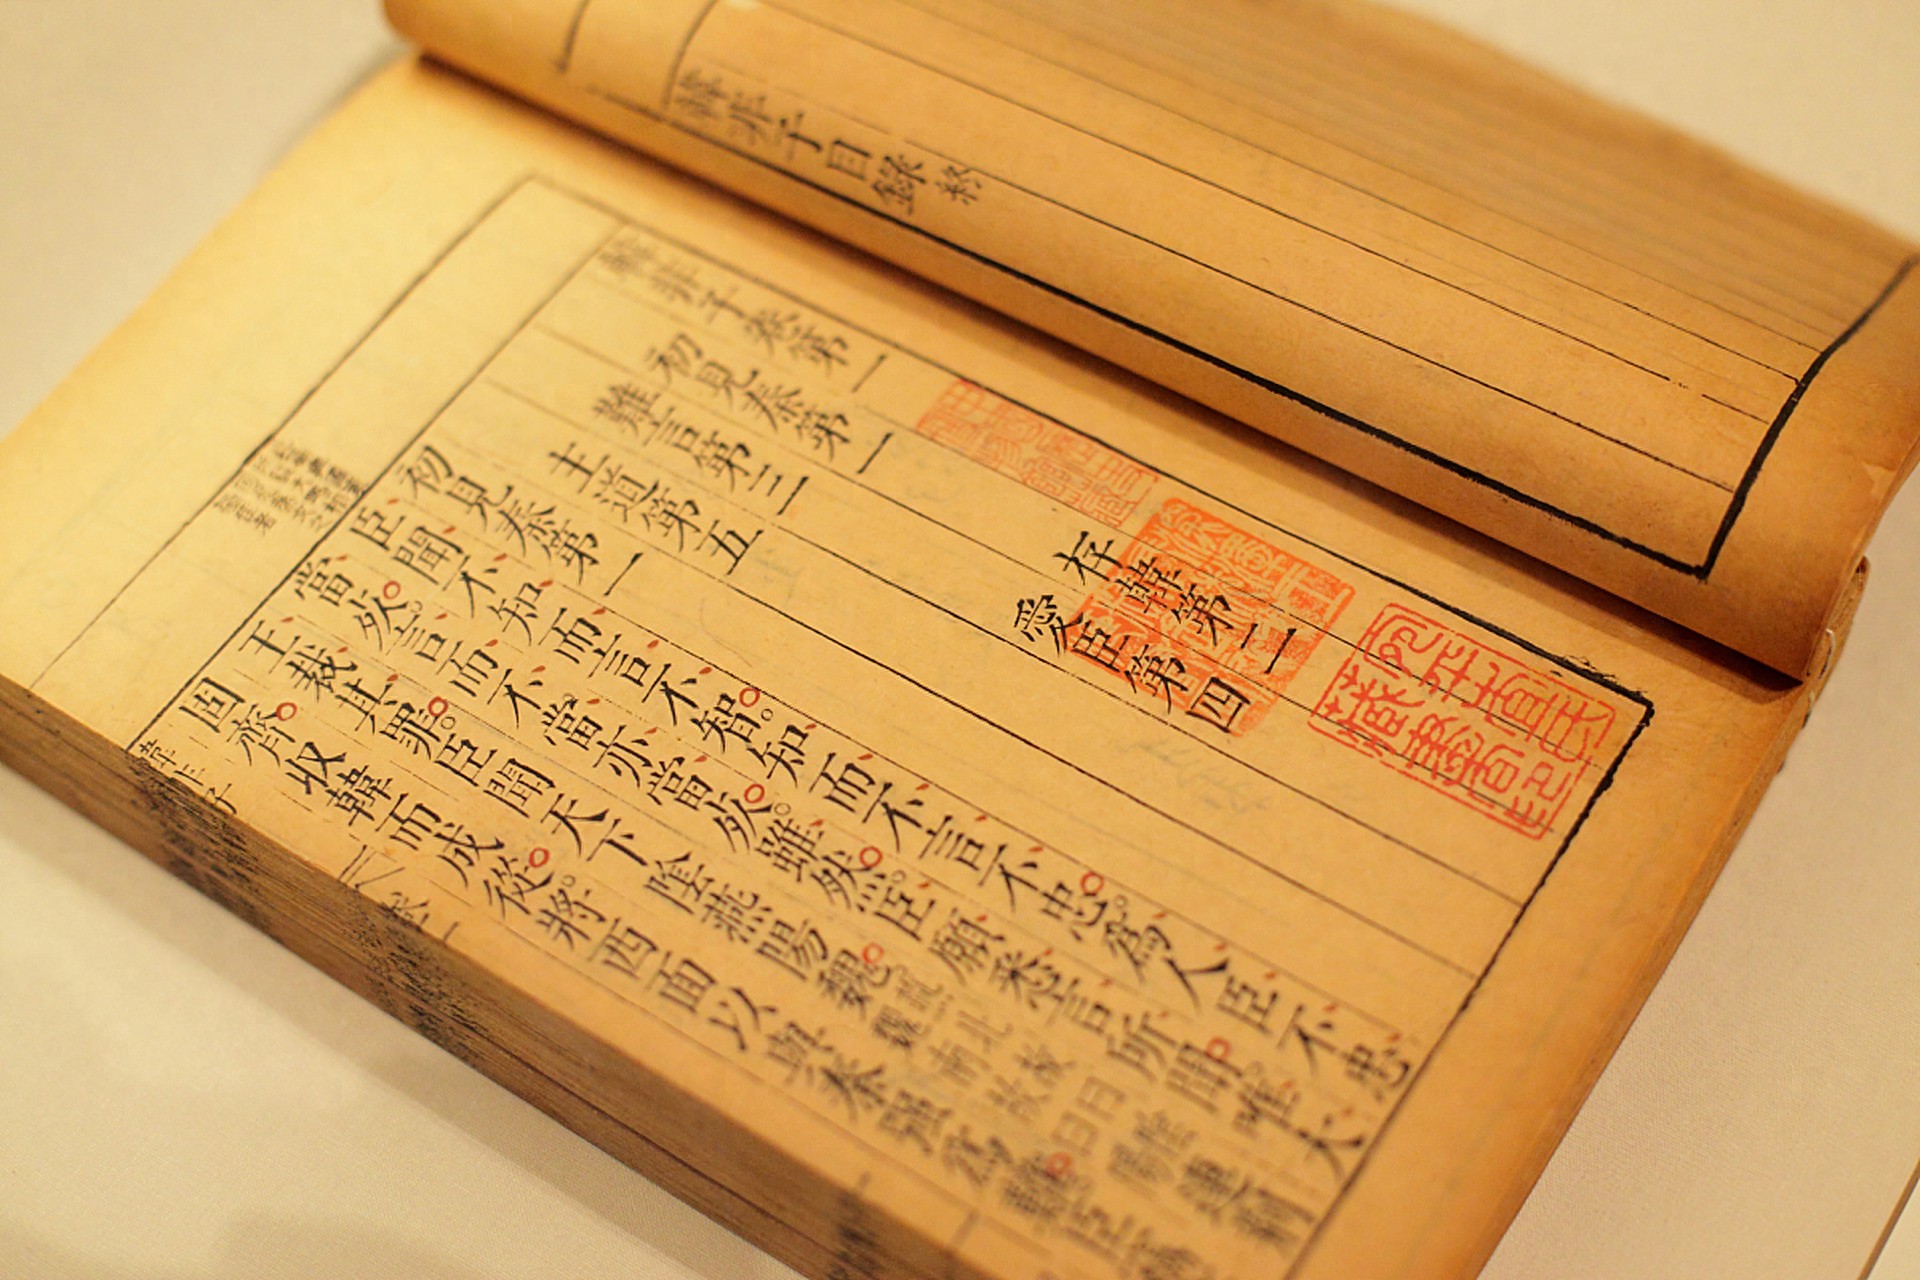 韓非子目錄 終
韓非子卷第一
初見秦第一 存韓第二
難言第三 愛臣第四
主道第五
初見秦第一
臣聞不知而言不智。知而不言不忠。爲人臣不忠
當死。言而不當亦當死。雖然臣願悉言所聞。唯大
王裁其罪。臣聞天下陰燕陽魏 燕北故曰陰 魏南故曰陽 連荆
固齊收韓而成從。將西面以與秦強爲難臣竊
韓非子 卷一